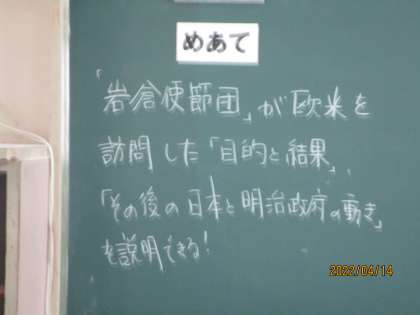 めあて
「岩倉使節団」が欧米を
訪問した「目的と結果」、
「その後の日本と明治政府の動き」
を説明できる!
2022/04/14